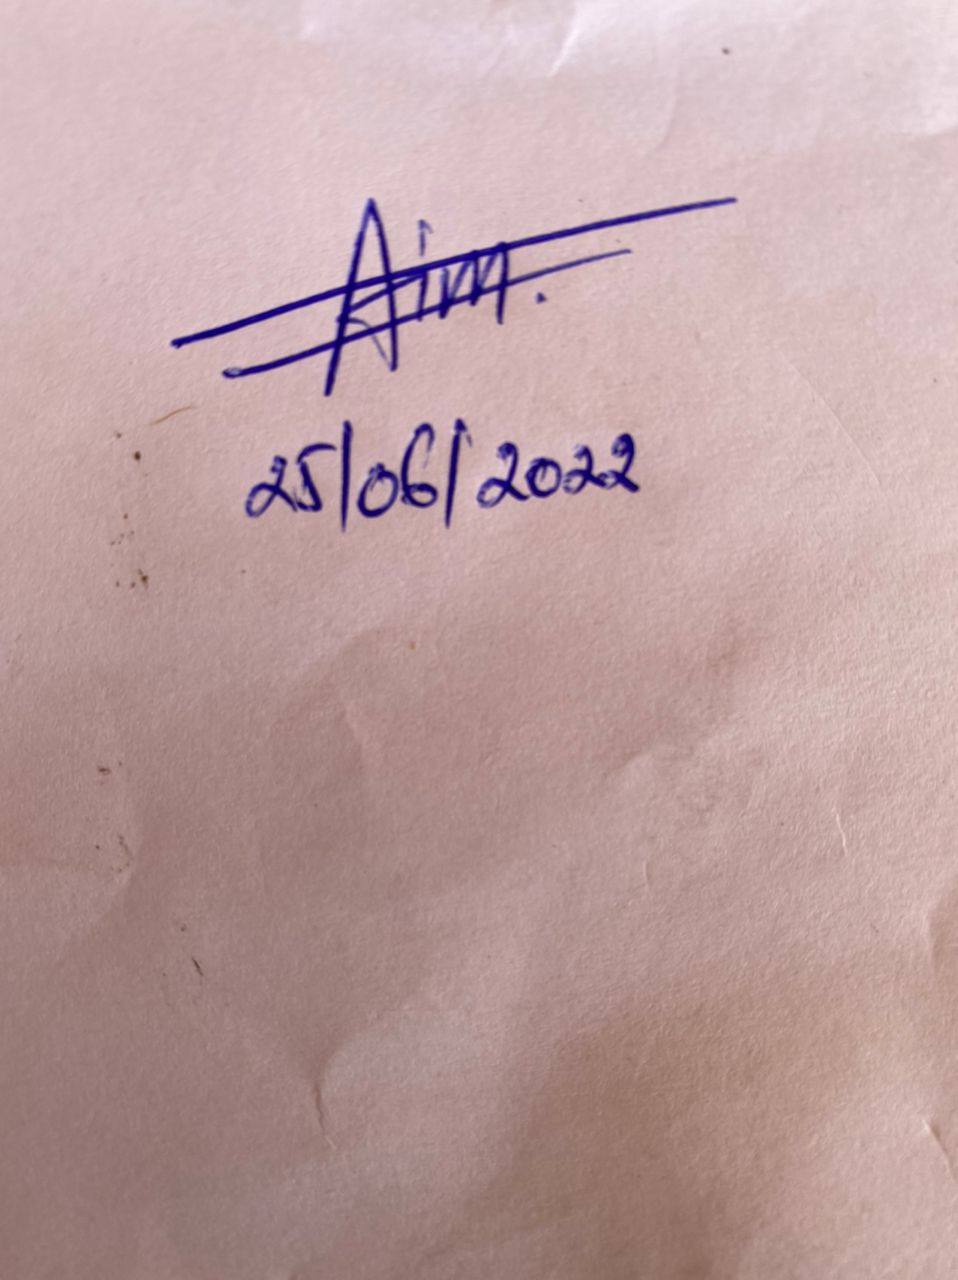 Aim.
25/06/2022